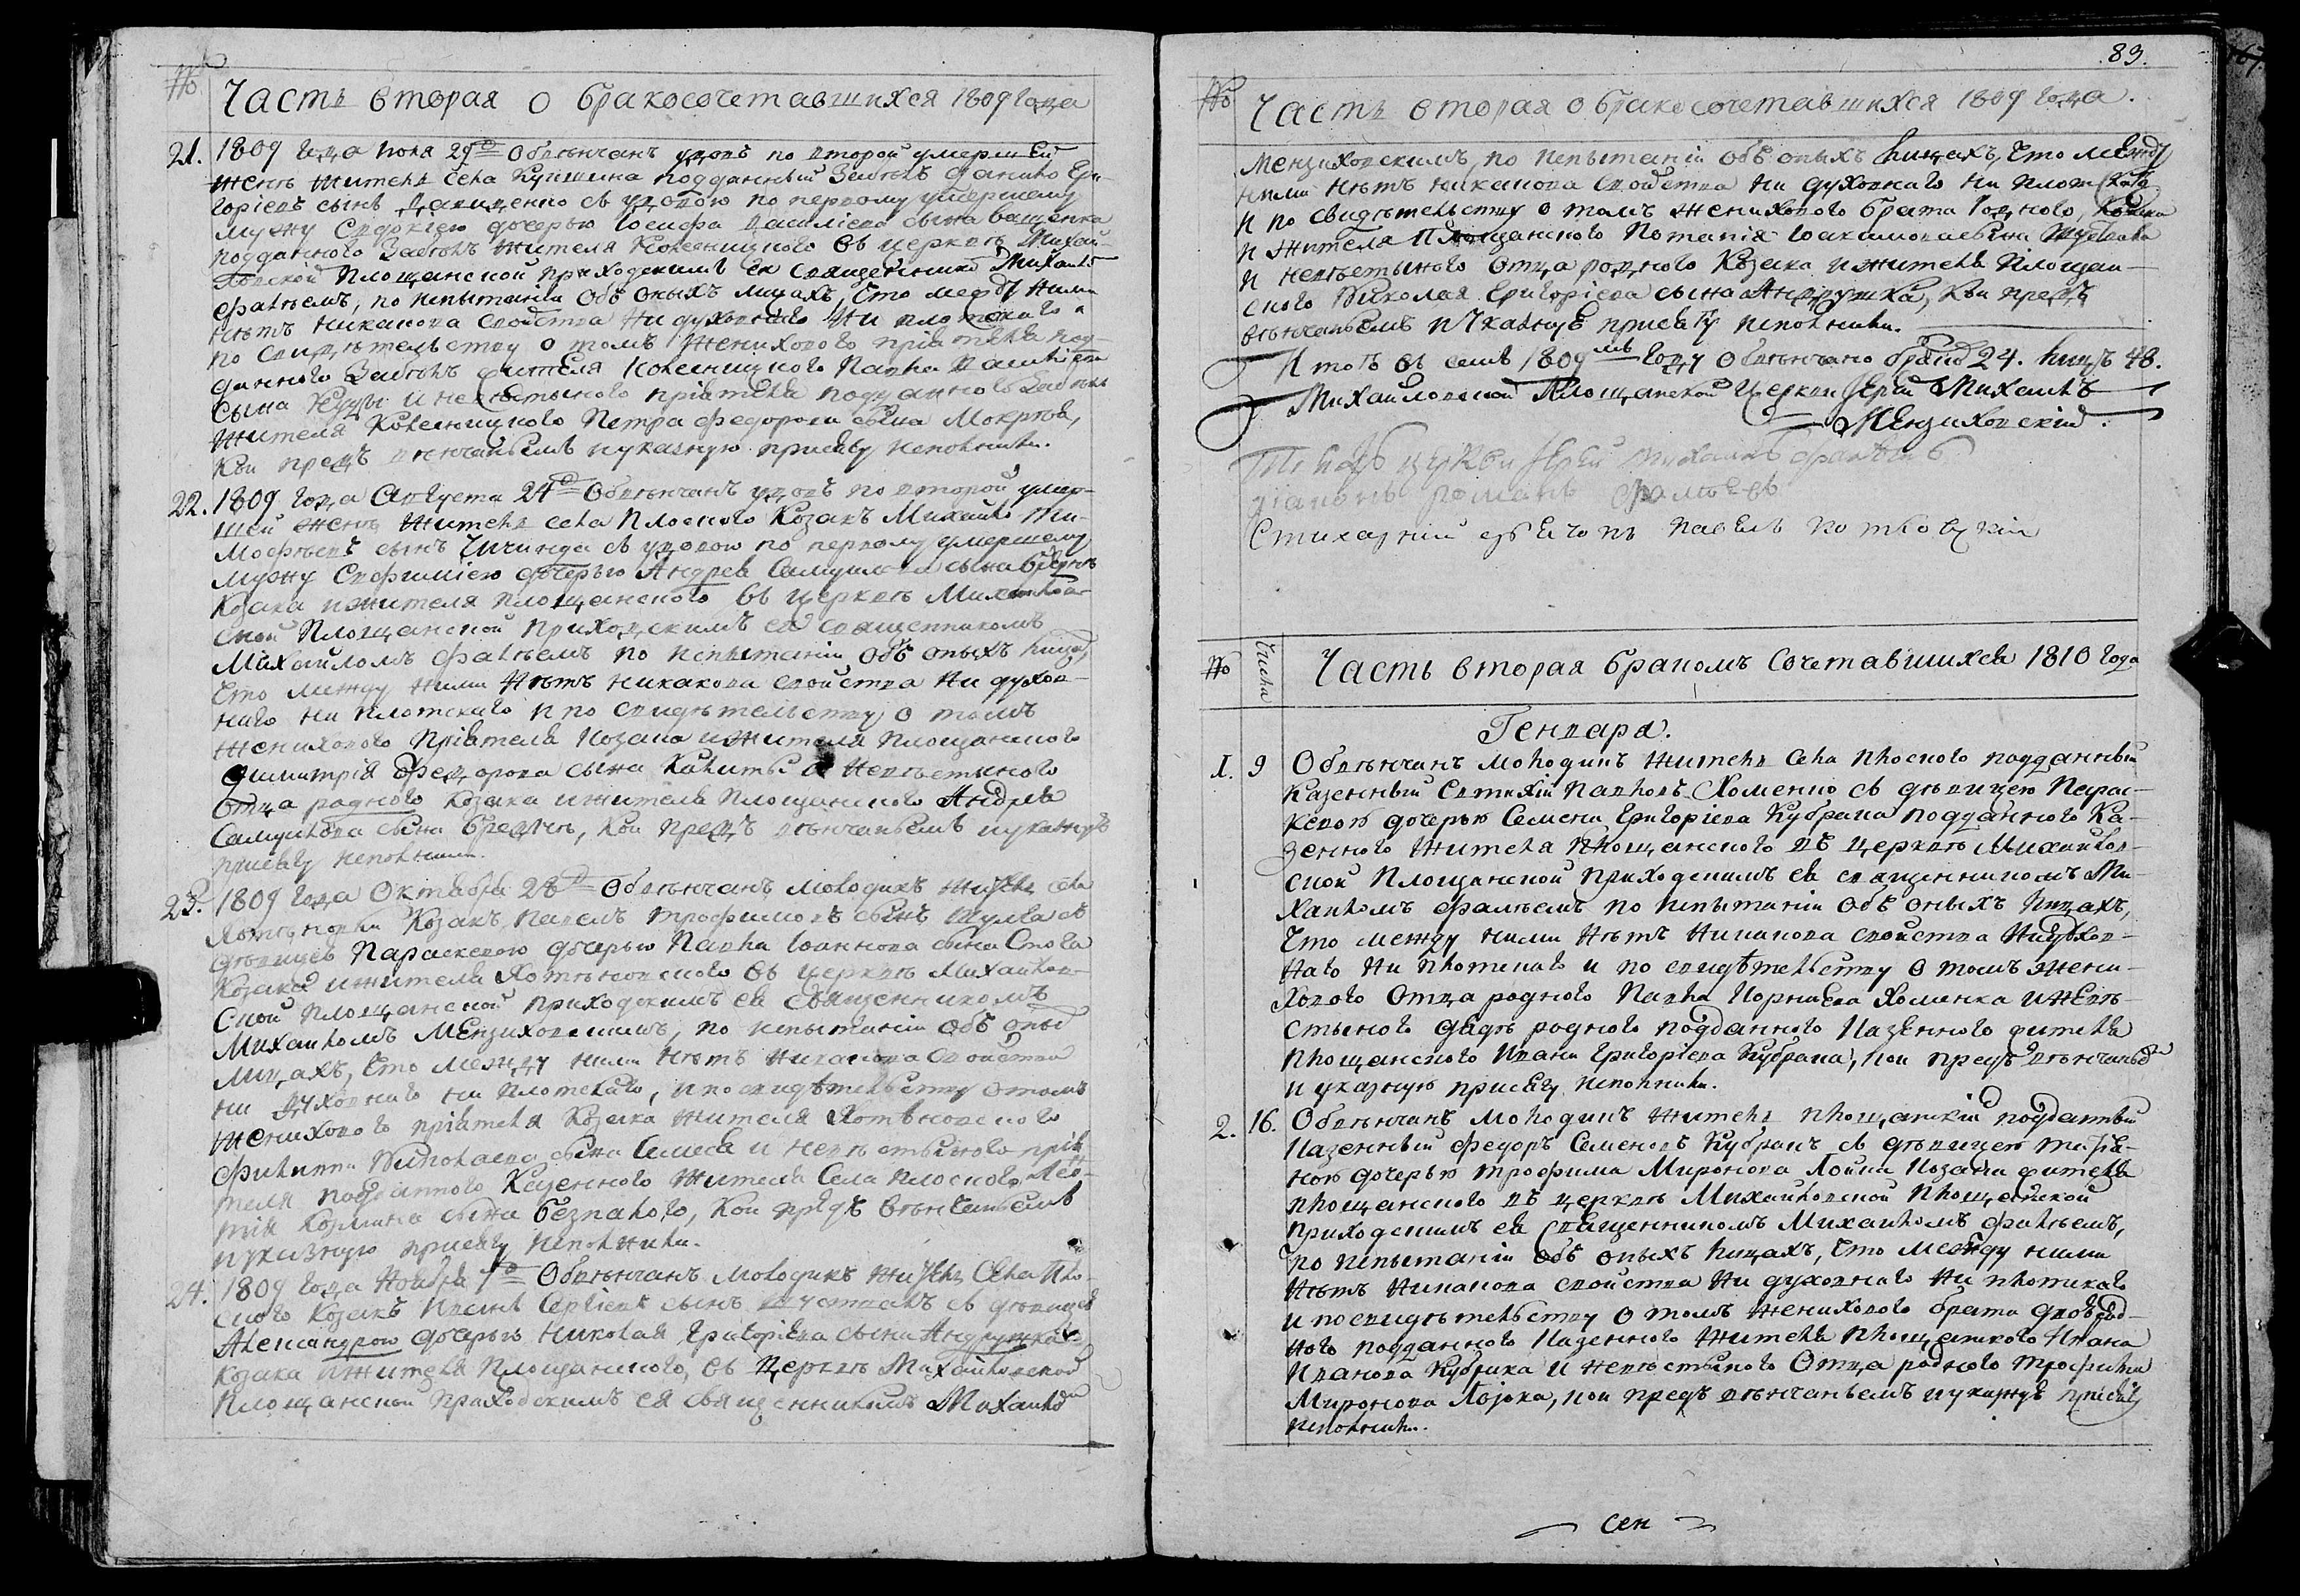 №
Часть вторая о бракосочетавшихся 1809 года
21. 1809 года июля 29 Обвѣнчанъ удовъ по второй умершей
женѣ житель села Кушина подданный Данило Гри-
горіевъ сынъ съ удовою по первому умершему
мужу Евдокіею дочерью Іосифа Василіева сына Ващенка
подданного жителя въ церквѣ Михай-
ловской Площанской приходскимъ ея священникомъ Михаиломъ
Фалѣемъ, по испытаніи объ оныхъ лицахъ, что между ними
нѣтъ никакова свойства ни духовнаго ни плотскаго и
по свидѣтельству о томъ женихового пріятеля под-
данного жителя Павла Василіева
сына и невѣстиного пріятеля подданного
жителя Петра Федорова сына
кои предъ вѣнчаньемъ и указную присягу исполнили.
22. 1809 года Августа 24 Обвѣнчанъ удовъ по второй умер-
шей женѣ житель села Плоского Козакъ Михайло Ти-
мофѣевъ сынъ Чичинда съ удовою по первому умершему
мужу Евфиміею дочерью Андрея Самуилова сына
Козака и жителя Площанского въ церквѣ Михайлов-
ской Площанской приходскимъ ея священникомъ
Михаиломъ Фалѣемъ по испытаніи объ оныхъ лицах,
что между ними нѣтъ никакова свойства ни духов-
наго ни плотскаго и по свидѣтельству о томъ
женихового пріятеля Козака и жителя Площанского
Димитрія Федорова сына и невѣстиного
отца родного Козака и жителя Площанского Андрея
Самуилова сына кои предъ вѣнчаньемъ и указную
присягу исполнили.
23. 1809 года Октября 28 Обвѣнчанъ молодикъ житель села
Козакъ Павелъ Трофимовъ сынъ Шулга съ
дѣвицею Параскевою дочерью Павла Іоаннова сына
Козака и жителя въ церквѣ Михайлов-
ской Площанской приходскимъ ея священникомъ
Михаиломъ Мензиховскимъ, по испытаніи объ оных
лицахъ, что между ними нѣтъ никакова свойства
ни духовнаго ни плотскаго, и по свидѣтельству о томъ
женихового пріятеля Козака жителя
Филиппа Николаева сына и невѣстиного пріа-
теля подданного Казенного жителя Села Плоского
сына Безпалого, кои предъ вѣнчаньемъ
и указную присягу исполнили.
24. 1809 года Ноября 7 Обвѣнчанъ молодикъ житель Села Пло-
ского Козакъ Сергіевъ сынъ съ дѣвицею
Александрою дочерью Николая Григоріева сына Андрушка
Козака и жителя Площанского, въ Церквѣ Михайловской
Площанской приходскимъ ея священникомъ Михаиломъ
83.
№
Часть вторая о бракосочетавшихся 1809 года.
Мензиховскимъ, по испытаніи объ оныхъ лицахъ, что между
ними нѣтъ никакова свойства ни духовнаго ни плотскаго
и по свидѣтельству о томъ женихового брата родного, Козака
и жителя Площанского
и невѣстиного отца родного Козака и жителя Площан-
ского Николая Григоріева сына Андрушка, кои предъ
вѣнчаньемъ и указную присягу исполнили.
Итогъ въ семъ 1809мъ году обвѣнчано браковъ 24. лицъ 48.
Михайловской Площанской Церкви Іерей Михаилъ
Мензиховскій.
Тоя жъ церкви Іерей Михаилъ Фалѣевъ
діаконъ Романъ Фалѣевъ
Стихарний дьячокъ Павелъ
№
Числа
Часть вторая бракомъ Сочетавшихся 1810 года
Генваря.
1. 9 Обвѣнчанъ молодикъ житель села Плоского подданный
Казенный Евтихій Павловъ Хоменко съ дѣвицею Парас-
кевою дочерью Семена Григоріева Кубрака подданного Ка-
зенного жителя Площанского въ церквѣ Михайлов-
ской Площанской приходскимъ ея священникомъ Ми-
хаиломъ Фалѣемъ по испытаніи объ оныхъ лицахъ,
что между ними нѣтъ никакова свойства ни духов-
наго ни плотскаго и по свидѣтельству о томъ жени-
хового отца родного Павла Корнѣева Хоменка и невѣ-
стиного дяди родного подданного Казенного жителя
Площанского Ивана Григоріева Кубрака, кои предъ вѣнчаньемъ
и указную присягу исполнили.
2. 16. Обвѣнчанъ молодикъ житель Площанскій подданный
Казенный Федоръ Семеновъ Кубракъ съ дѣвицею Татія-
ною дочерью Трофима Миронова Козака жителя
Площанского въ церквѣ Михайловской Площанской
приходскимъ ея священникомъ Михаиломъ Фалѣемъ,
по испытаніи объ оныхъ лицахъ, что между ними
нѣтъ никакова свойства ни духовнаго ни плотскаго
и по свидѣтельству о томъ женихового брата двоюрод-
ного подданного Казенного жителя Площанского Ивана
Иванова Кубрака и невѣстиного Отца родного Трофима
Миронова кои предъ вѣнчаньемъ и указную присягу
исполнили.
сен